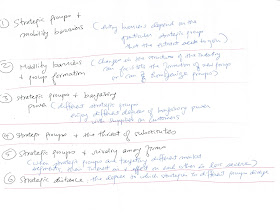 ① Strategic groups + mobility barriers (entry barriers depend on the
particular strategic group
that the entrant seeks to join)
② Mobility barriers + group formation (changes in the structure of the industry
can facilitate the formation of new groups
or can homogenize groups)
③ Strategic groups + bargaining power (different strategic groups
enjoy different degrees of bargaining power
with suppliers or customers)
④ Strategic groups + the threat of substitutes
⑤ Strategic groups + rivalry among firms
(when strategic groups are targeting different market
segments, their interest in + effect on each other is less severe)
⑥ Strategic distance: the degree to which strategies in different groups diverge